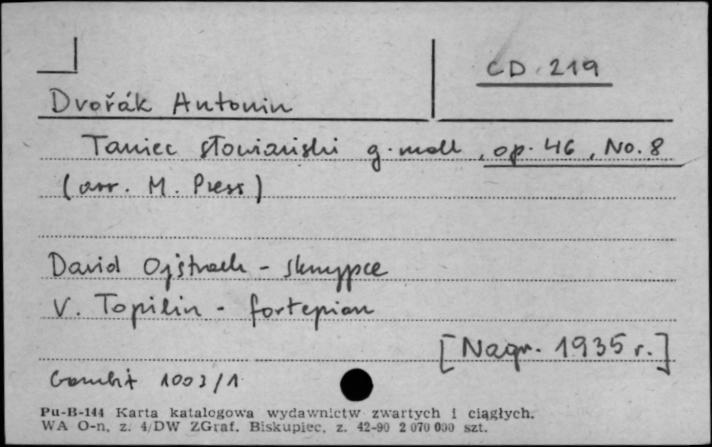 CD 219
Dvořák Antonin
Taniec słowiański g-moll, op. 46, No. 8
(arr. M. Press)
David Ojstrach - skrzypce
V. Topilin - fortepian
[Nagr. 1935 r.]
Gambit 1003/1
Pu-B-144 Karta katalogowa wydawnictw zwartych i ciągłych.
WA O-n, z. 4/DW ZGraf. Biskupiec, z. 42-90 2 070 000 szt.